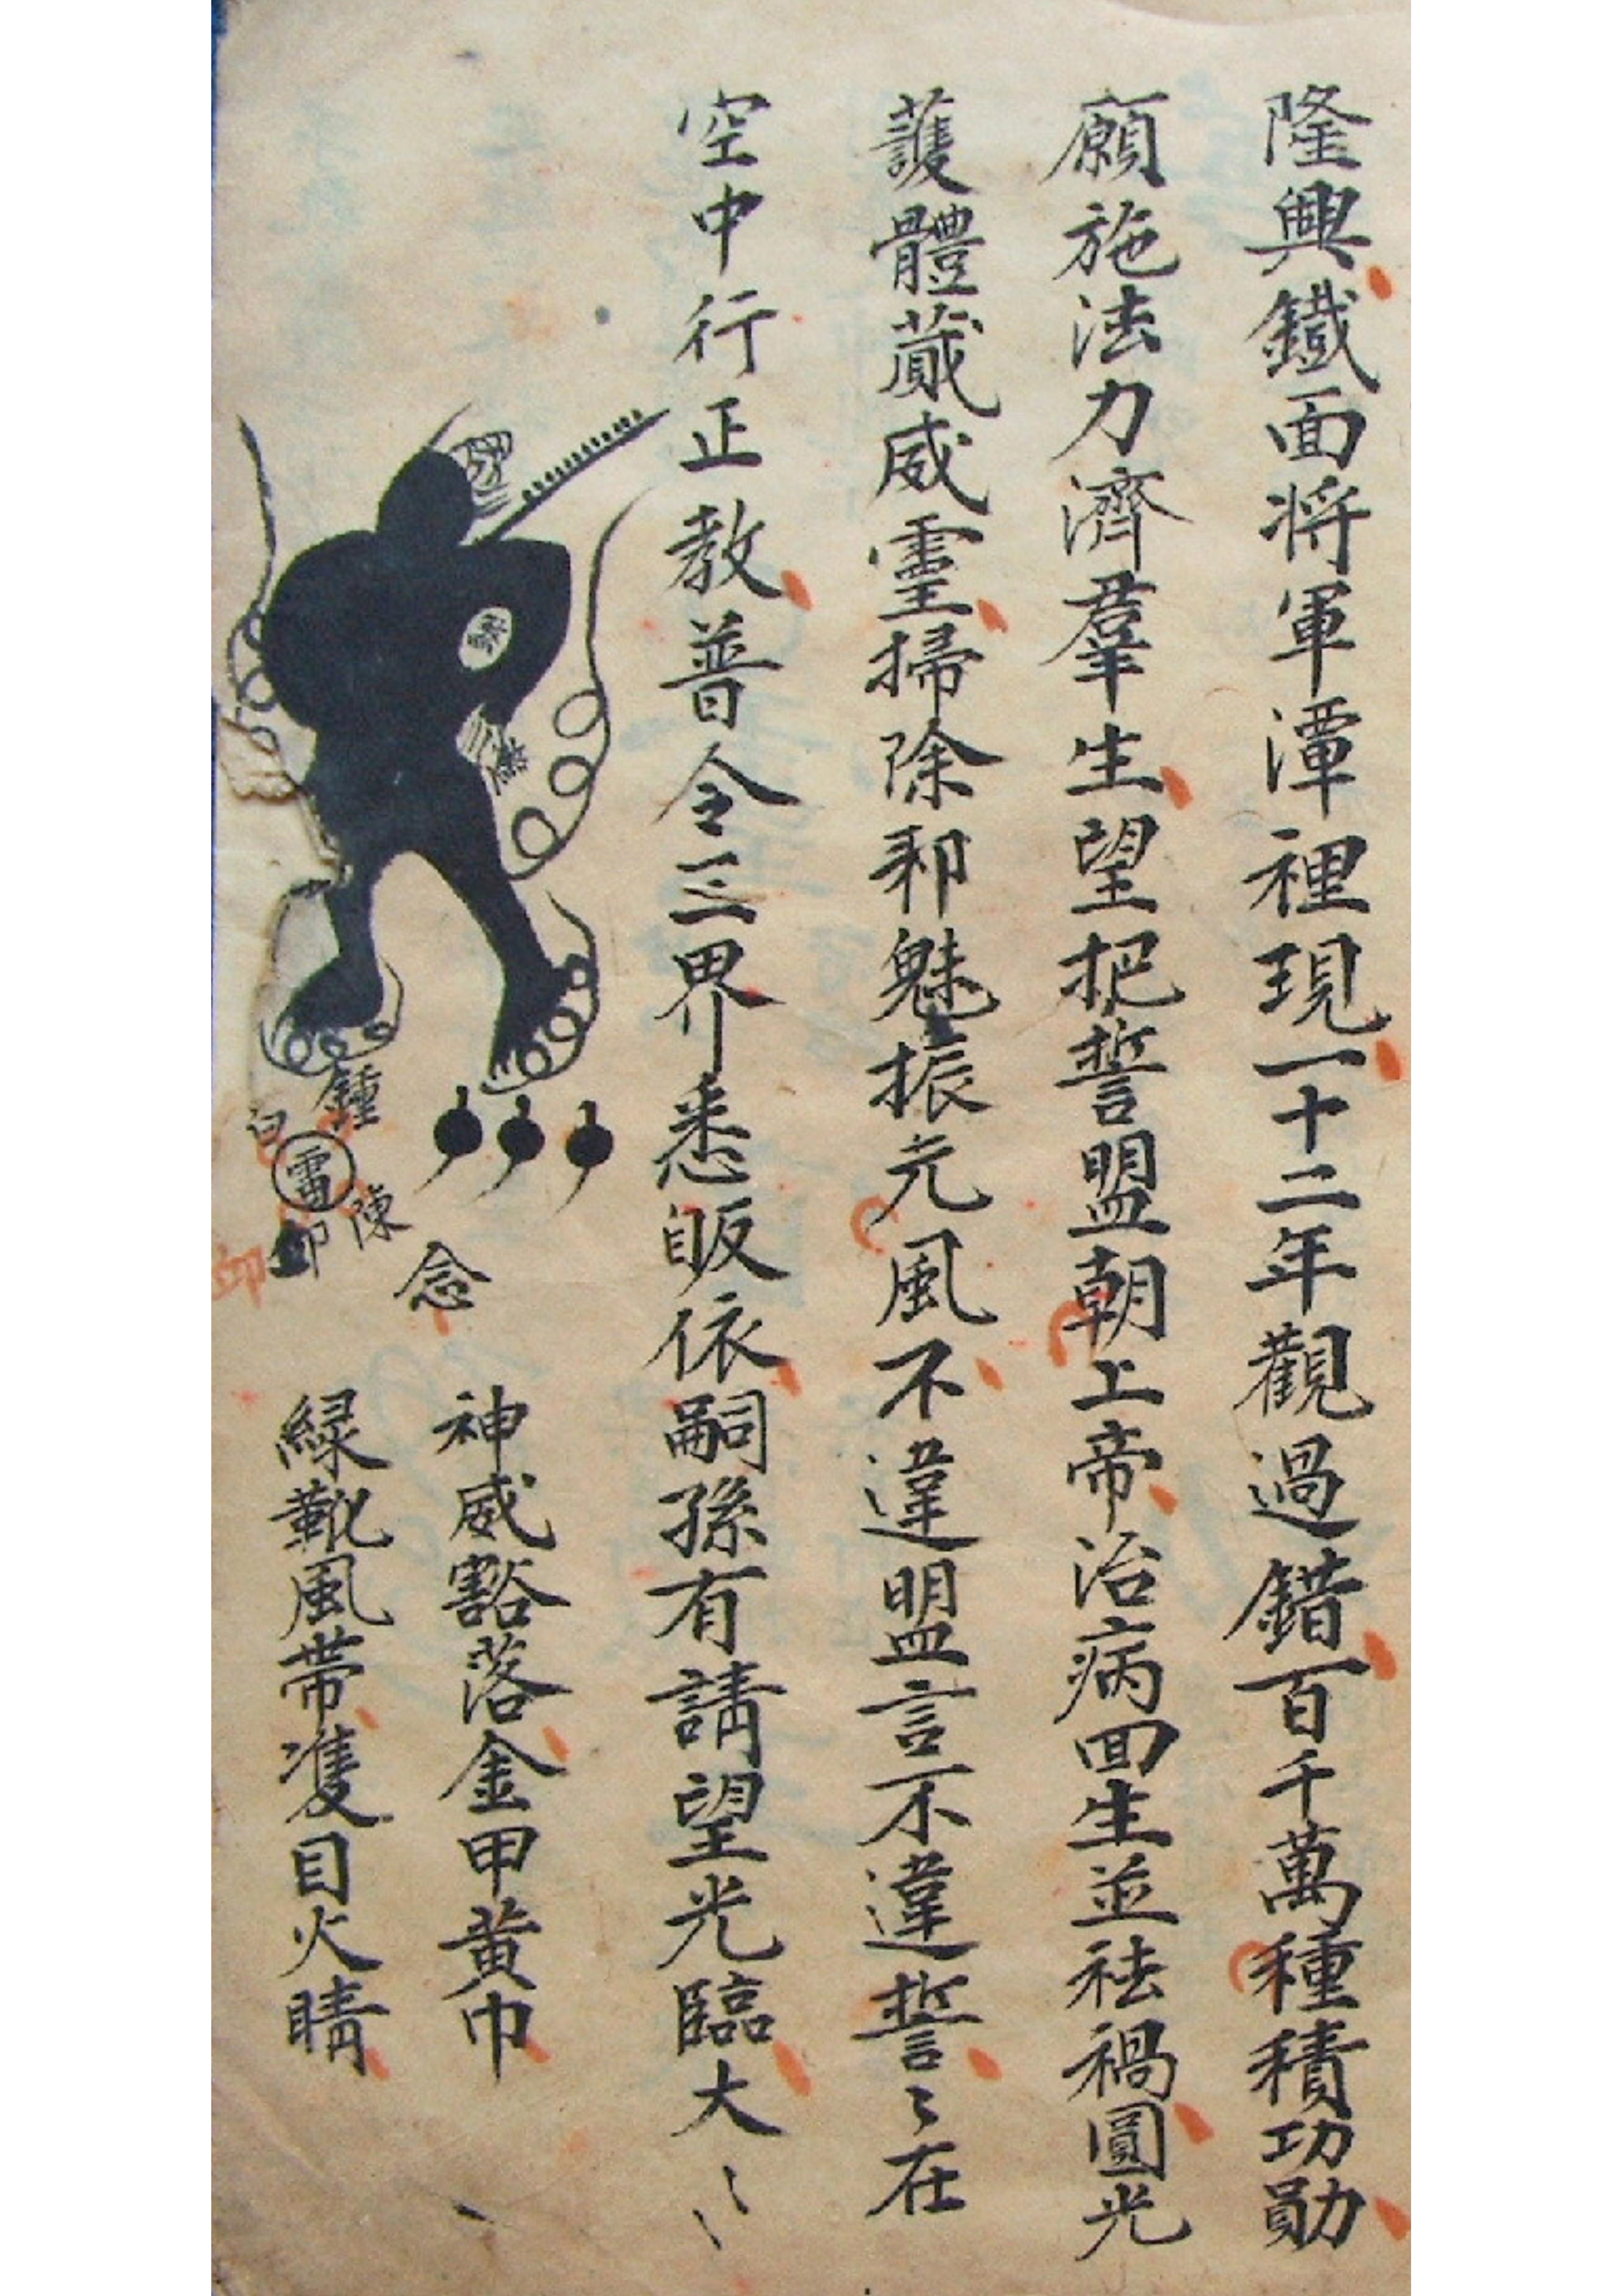 隆興鐡面将軍潭裡現一十二年觀過錯百千萬種積功勛
願施法力濟羣生望把誓盟朝上帝治病回生並祛禍圓光
護體蔵威霊掃除邪魅振元風不違盟言不違誓〻在
空中行正教普令三界悉皈依嗣孫有請望光臨大〻〻
鍾
白
雷
陳
卬
卬
念
神威豁落金甲黄巾
緑靴風帯隻目火睛